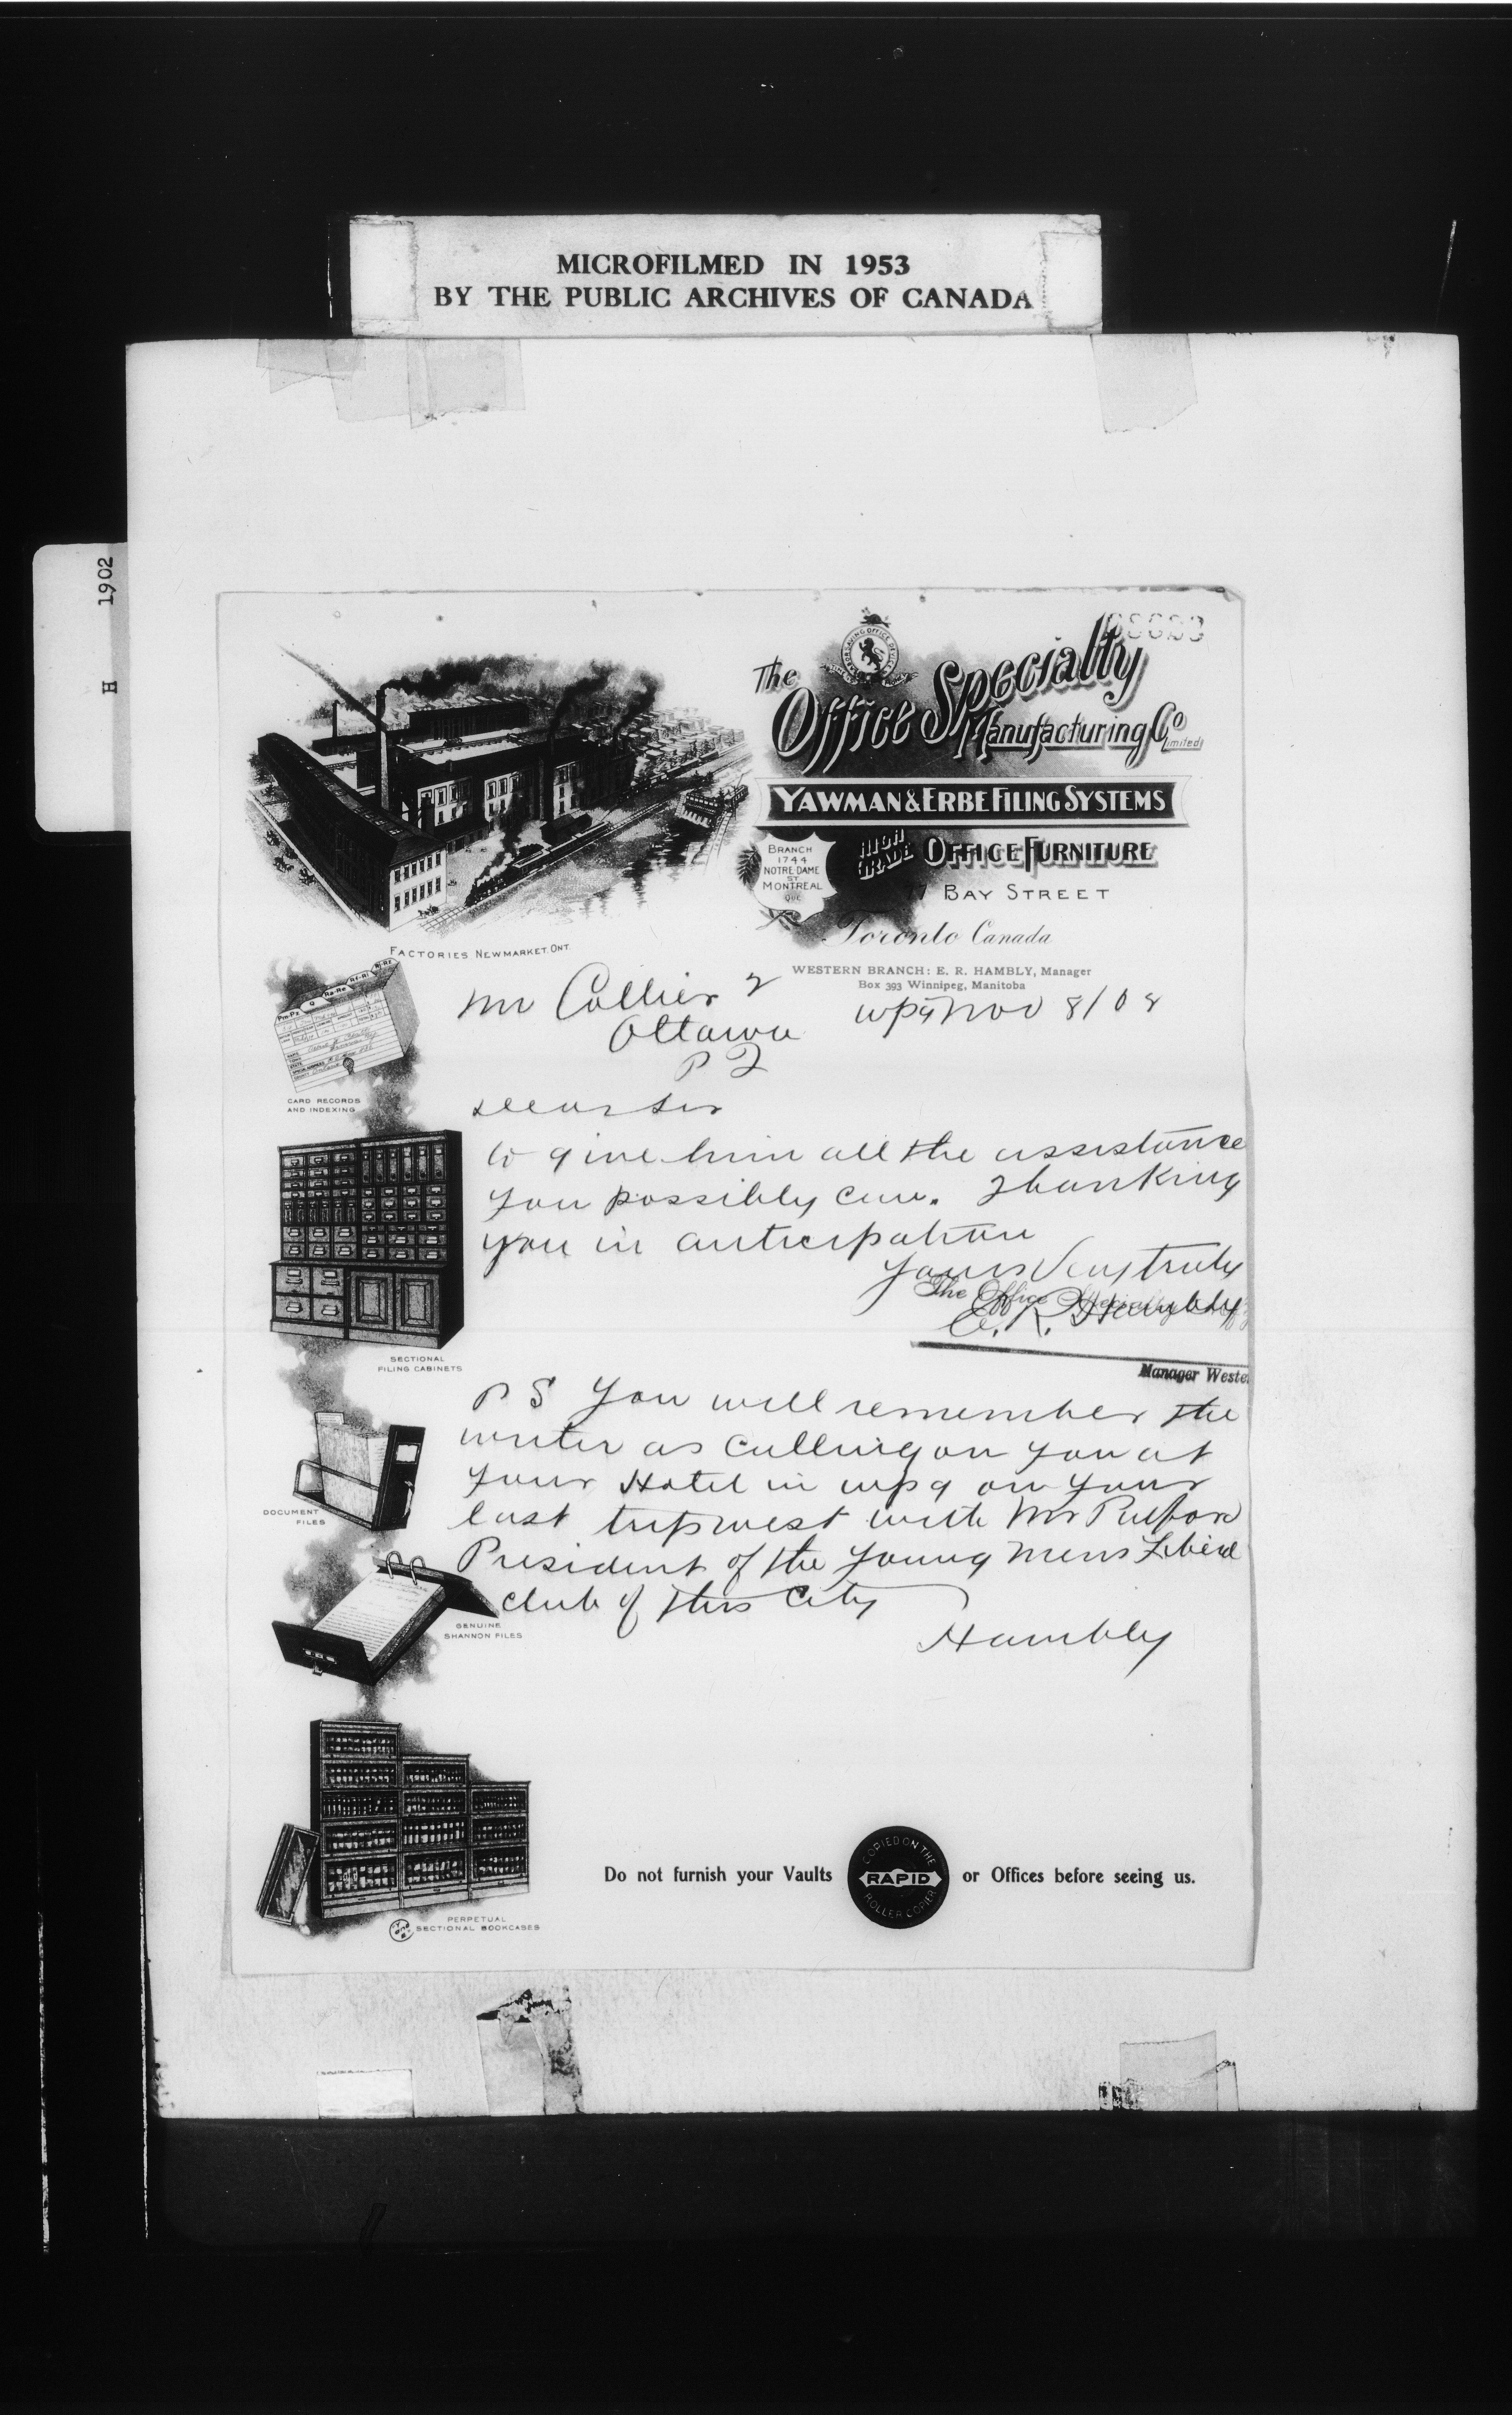 MICROFILMED IN 1953
BY THE PUBLIC ARCHIVES OF CANADA
H 1902
The
Office Specialty
Manufacturing Co
Limited
YAWMAN & ERBE FILING SYSTEMS
HIGH GRADE OFFICE FURNITURE
BRANCH
1744
NOTRE DAME
ST
MONTREAL
QUE
77 BAY STREET
Toronto Canada
FACTORIES NEWMARKET. ONT.
WESTERN BRANCH: E. R. HAMBLY, Manager
Box 393 Winnipeg, Manitoba
Mr Collier 2
Wpg Nov 8/08
Ottawa
P 2
Dear Sir
to give him all the assistance
you possibly can. Thanking
you in anticipation
Yours Very truly
The Office Specialty
E. R. Hambly
Manager Weste
P S You will remember the
writer as calling on you at
your Hotel in wpg on your
last trip west with Mr
President of the Young Mens Liberal
club of this City
Hambly
CARD RECORDS
AND INDEXING
SECTIONAL
FILING CABINETS
DOCUMENT
FILES
GENUINE
SHANNON FILES
PERPETUAL
SECTIONAL BOOKCASES
Do not furnish your Vaults or Offices before seeing us.
COPIED ON THE
RAPID
ROLLER COPIER